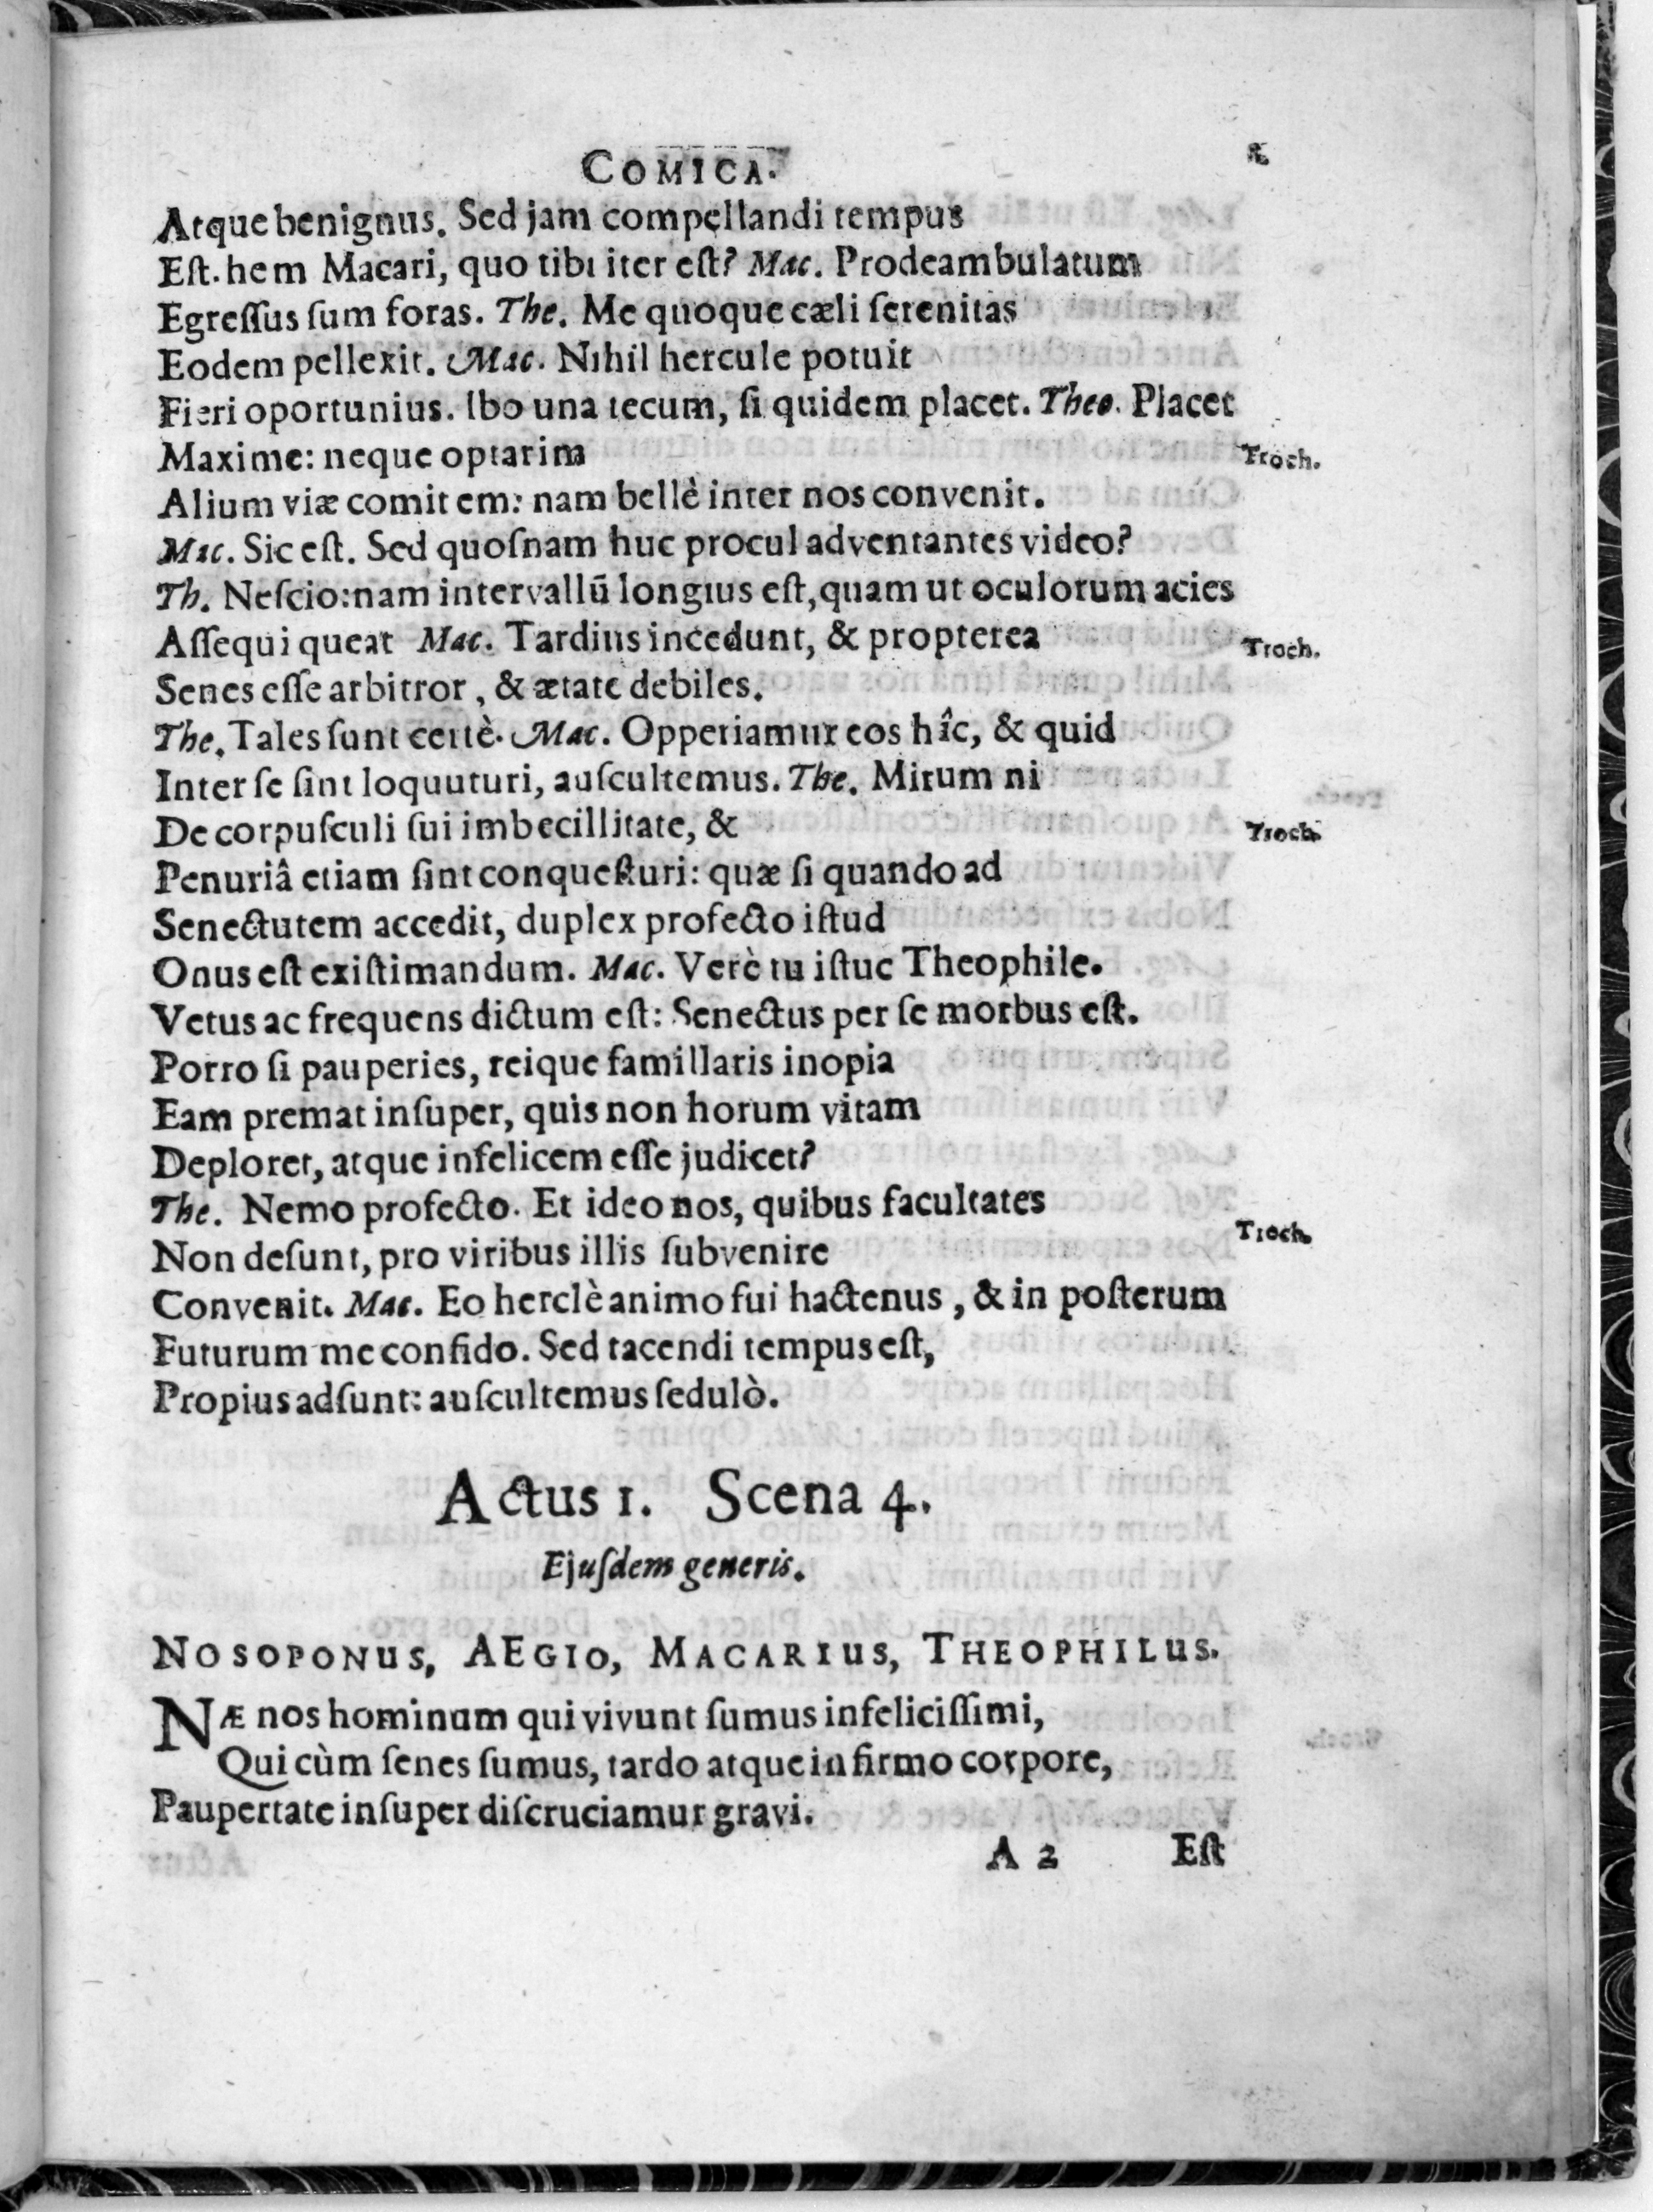 COMICA.
Atque benignus. Sed jam compellandi tempus
Eſt. hem Macari, quo tibi iter eſt? Mac. Prodeambulatum
Egreſſus ſum foras. The. Me quoque cæli ſerenitas
Eodem pellexit. Mac. Nihil hercule potuit
Fieri oportunius. Ibo una tecum, ſi quidem placet. Theo. Placet
Maxime: neque optarim Troch.
Alium viæ comitem: nam bellè inter nos convenit.
Mac. Sic eſt. Sed quoſnam huc procul adventantes video?
Th. Neſcio: nam intervallū longius eſt, quam ut oculorum acies
Aſſequi queat Mac. Tardius incedunt, & propterea Troch.
Senes eſſe arbitror, & ætate debiles.
The. Tales ſunt certè. Mac. Opperiamur eos hîc, & quid
Inter ſe ſint loquuturi, auſcultemus. The. Mirum ni
De corpuſculi ſui imbecillitate, & Troch.
Penuriâ etiam ſint conqueſturi: quæ ſi quando ad
Senectutem accedit, duplex profecto iſtud
Onus eſt exiſtimandum. Mac. Verè tu iſtuc Theophile.
Vetus ac frequens dictum eſt: Senectus per ſe morbus eſt.
Porro ſi pauperies, reique famillaris inopia
Eam premat inſuper, quis non horum vitam
Deploret, atque infelicem eſſe judicet?
The. Nemo profecto. Et ideo nos, quibus facultates
Non deſunt, pro viribus illis ſubvenire Troch.
Convenit. Mac. Eo herclè animo fui hactenus, & in poſterum
Futurum me confido. Sed tacendi tempus eſt,
Propius adſunt: auſcultemus ſedulò.
Actus 1. Scena 4.
Ejuſdem generis.
NOSOPONUS, AEGIO, MACARIUS, THEOPHILUS.
NÆ nos hominum qui vivunt ſumus infeliciſſimi,
Qui cùm ſenes ſumus, tardo atque infirmo corpore,
Paupertate inſuper diſcruciamur gravi.
A 2 Eſt